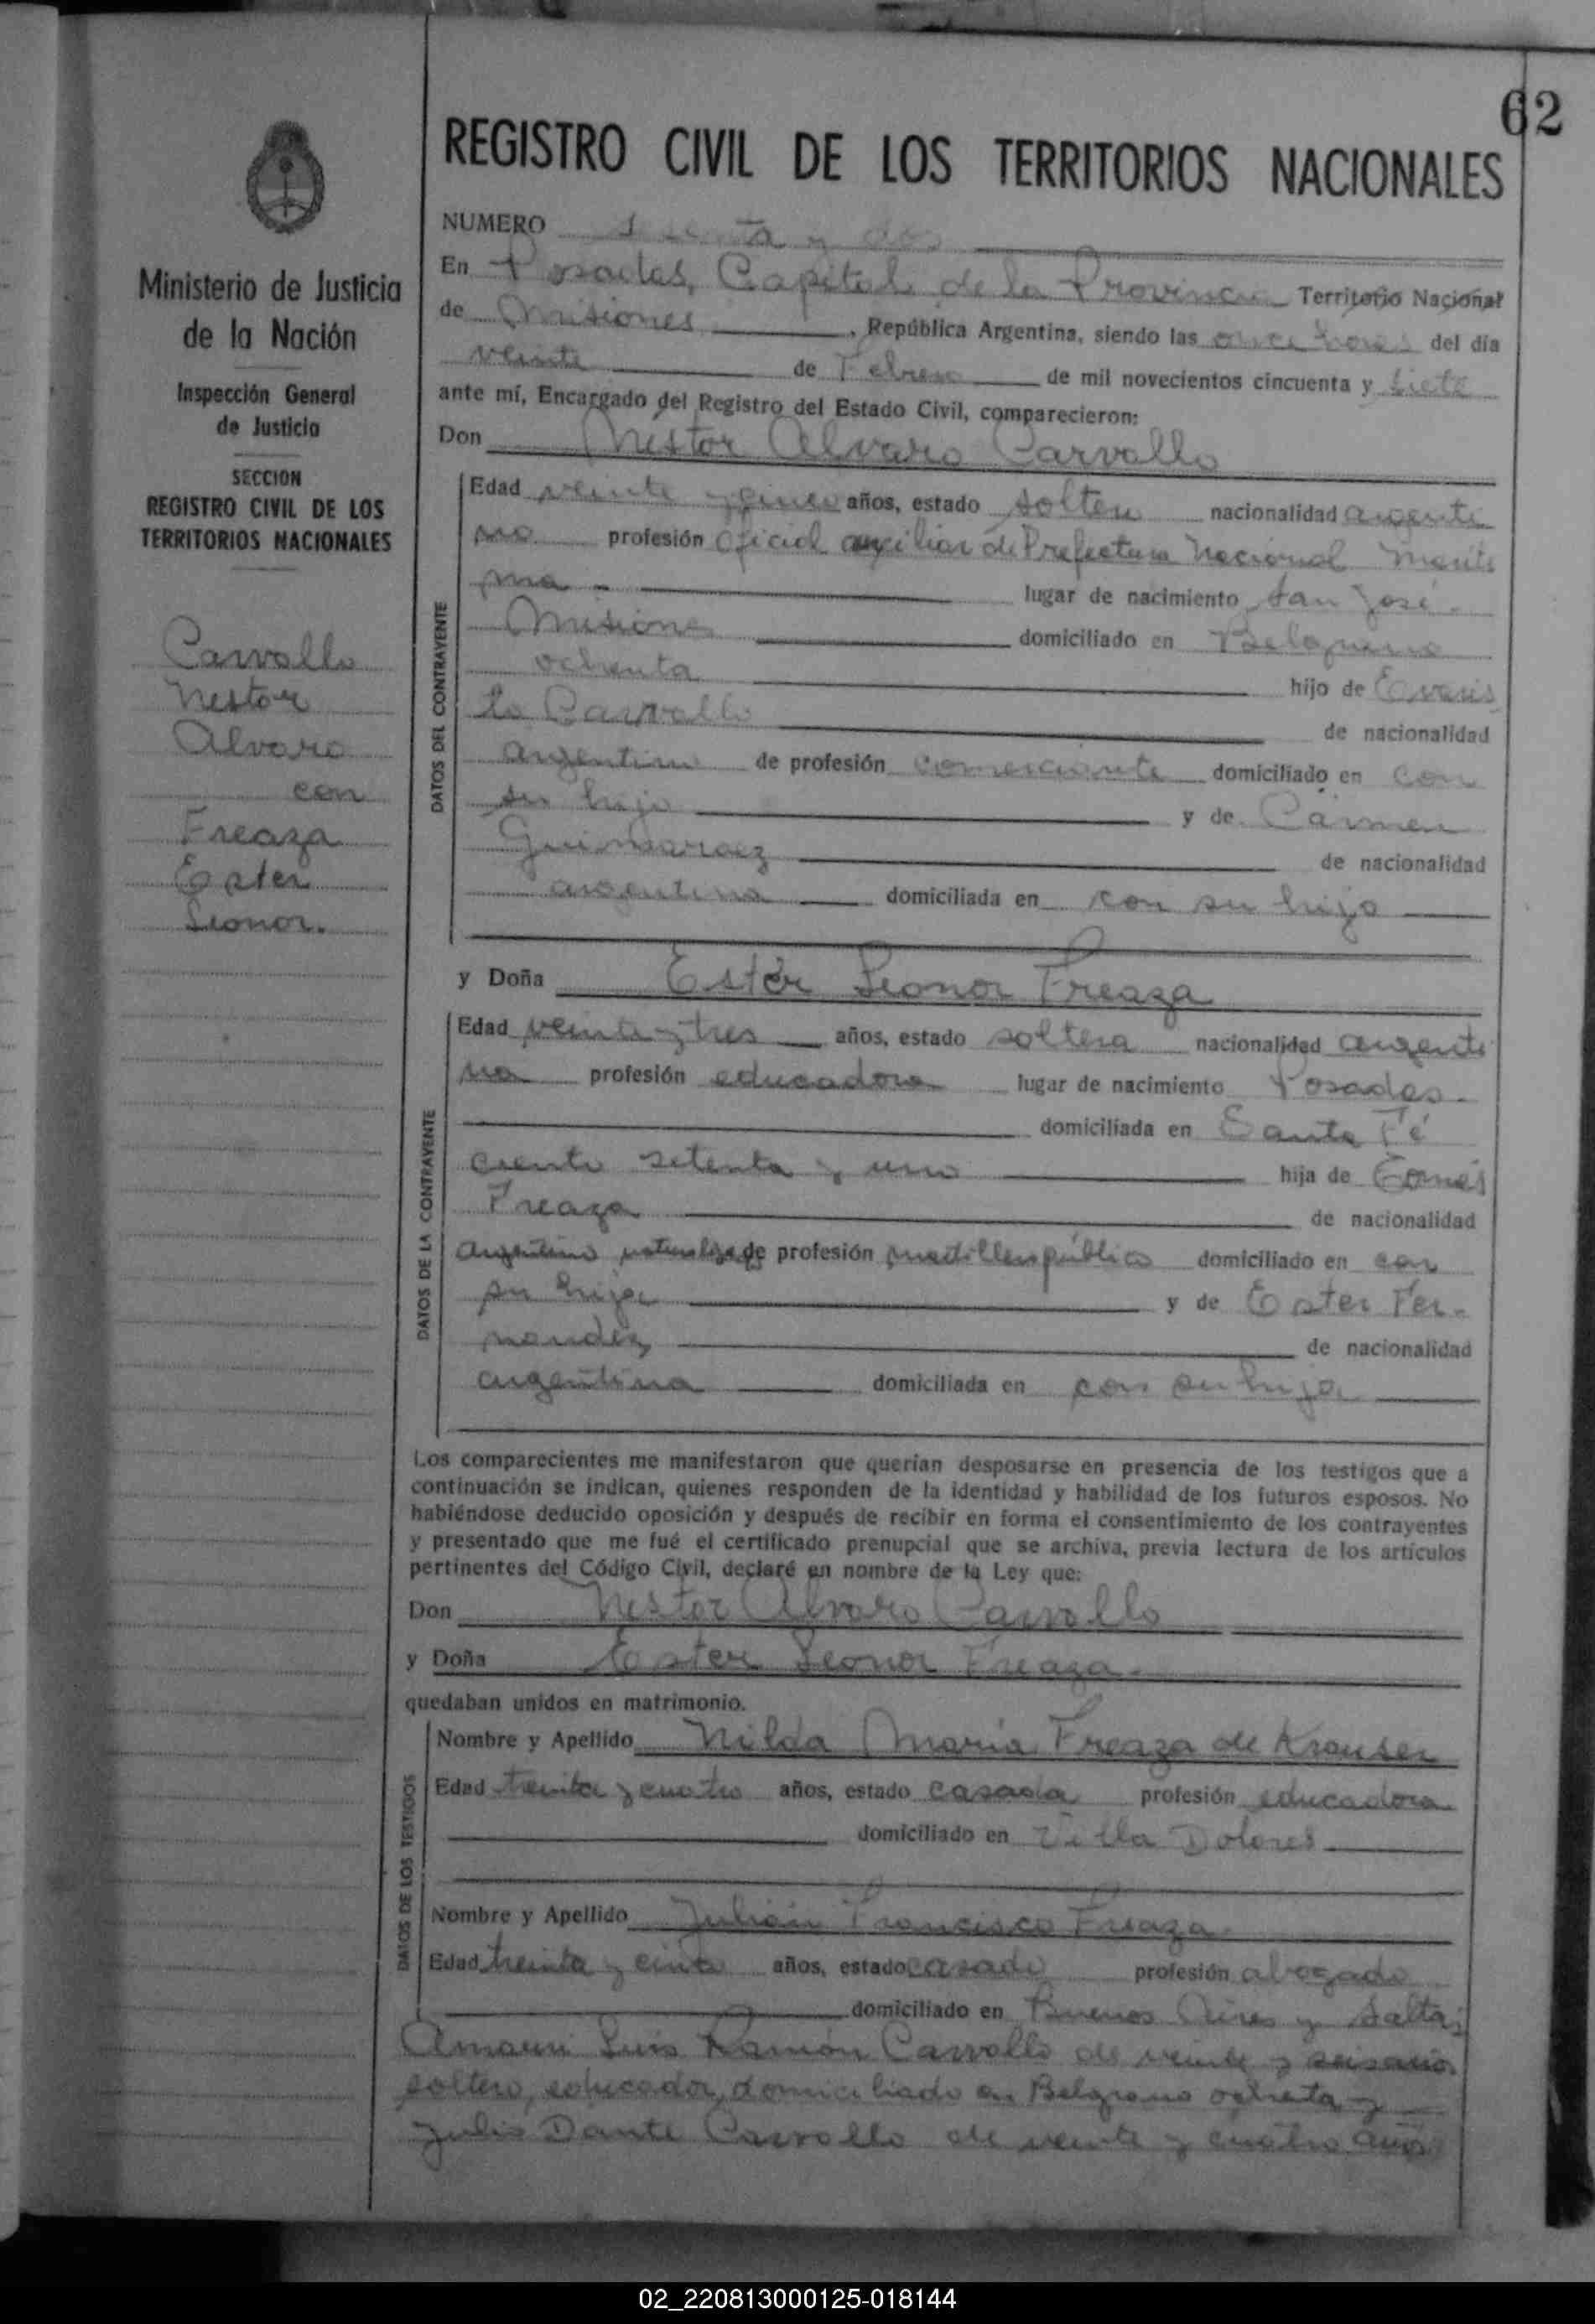 62
REGISTRO CIVIL DE LOS TERRITORIOS NACIONALES
Ministerio de Justicia
de la Nación
Inspección General
de Justicia
SECCION
REGISTRO CIVIL DE LOS
TERRITORIOS NACIONALES
Carvallo
Nestor
Alvaro
con
Freaza
Ester
Leonor.
NUMERO sesenta y dos
En Posadas, Capital de la Provincia Territorio Nacional
de Misiones, República Argentina, siendo las once horas del día
veinte de Febrero de mil novecientos cincuenta y siete
ante mí, Encargado del Registro del Estado Civil, comparecieron:
Don Néstor Alvaro Carvallo
DATOS DEL CONTRAYENTE
Edad veinte y cinco años, estado soltero nacionalidad argenti
no profesión Oficial auxiliar de Prefectura Nacional Marití
ma - lugar de nacimiento San José -
Misiones domiciliado en Belgrano
ochenta hijo de Evaris
to Carvallo de nacionalidad
argentino de profesión comerciante domiciliado en con
su hijo y de Carmen
Guimaraez de nacionalidad
argentina domiciliada en con su hijo
y Doña Ester Leonor Freaza
DATOS DE LA CONTRAYENTE
Edad veinte y tres años, estado soltera nacionalidad argenti
na profesión educadora lugar de nacimiento Posadas -
domiciliada en Santa Fé
ciento setenta y uno hija de
Freaza de nacionalidad
argentino de profesión público domiciliado en con
su hija y de Ester Fer-
nandez de nacionalidad
argentina domiciliada en con su hija
Los comparecientes me manifestaron que querían desposarse en presencia de los testigos que a
continuación se indican, quienes responden de la identidad y habilidad de los futuros esposos. No
habiéndose deducido oposición y después de recibir en forma el consentimiento de los contrayentes
y presentado que me fué el certificado prenupcial que se archiva, previa lectura de los artículos
pertinentes del Código Civil, declaré en nombre de la Ley que:
Don Nestor Alvaro Carvallo
y Doña Ester Leonor Freaza -
quedaban unidos en matrimonio.
DATOS DE LOS TESTIGOS
Nombre y Apellido Nilda María Freaza de Krauser
Edad treinta y cuatro años, estado casada profesión educadora
domiciliado en Villa Dolores
Nombre y Apellido Julián Francisco Freaza -
Edad treinta y cinco años, estado casado profesión abogado
domiciliado en Buenos Aires y Salta;
Luis Ramón Carvallo de veinte y seis años
soltero, educador, domiciliado en Belgrano ochenta y
Julio Dante Carvallo de veinte y cuatro años
02_220813000125-018144